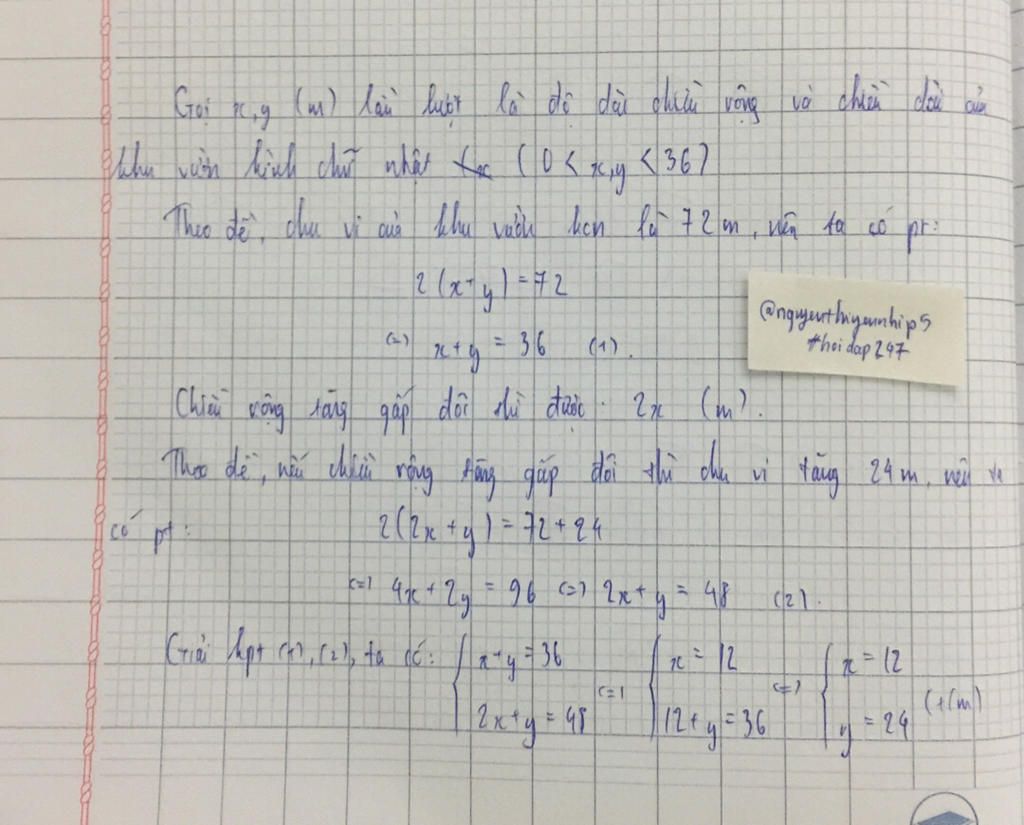 Gọi x,y (m) lần lượt là độ dài chiều rộng và chiều dài của
khu vườn hình chữ nhật (0 < x,y < 36)
Theo đề, chu vi của khu vườn hcn là 72 m, nên ta có pt:
2(x+y)=72
@nguyenthiyennhip5
#hoidap247
(=) x+y = 36 (1).
Chiều rộng tăng gấp đôi thì được: 2x (m).
Theo đề, nếu chiều rộng tăng gấp đôi thì chu vi tăng 24 m, nên ta
có pt: 2(2x+y)=72+24
(=) 4x+2y = 96 (=) 2x+y = 48 (2).
Giải hpt (1),(2), ta có: { x+y = 36 (=) { x = 12 (=) { x = 12
2x+y = 48 12+y = 36 y = 24 (t/m)